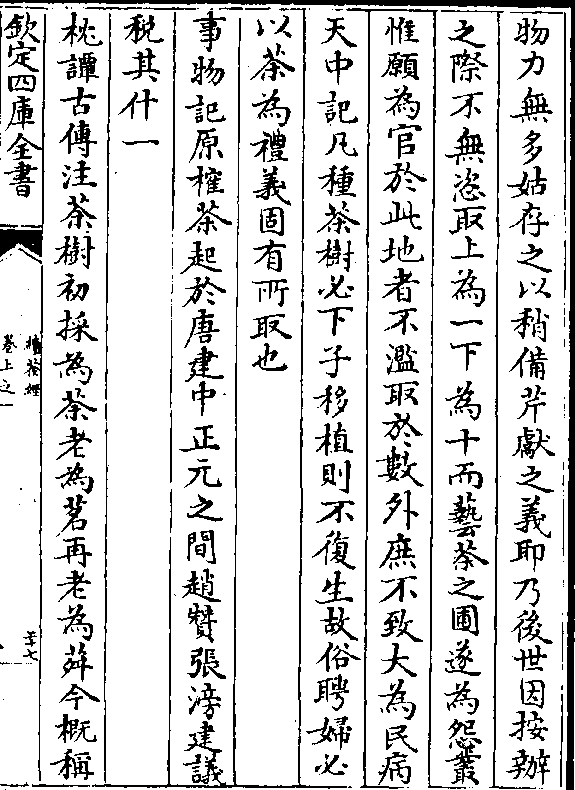 物力無多姑存之以稍備芹獻之義耶乃後世因按辦
之際不無恣取上為一下為十而藝茶之圃遂為怨叢
惟願為官於此地者不濫取於數外庶不致大為民病
天中記凡種茶樹必下子移植則不復生故俗聘婦必
以茶為禮義固有所取也
事物記原榷茶起於唐建中正元之間趙贊張滂建議
稅其什一
枕譚古傳注茶樹初採為茶老為茗再老為荈今概稱
欽定四庫全書
續茶經
卷上之一
三十七